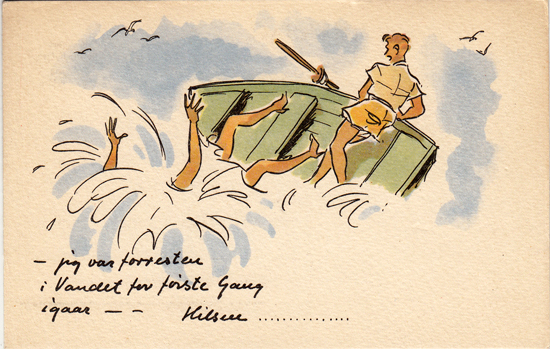 – jeg var forresten
i Vandet for første Gang
igaar – – Hilsen ...............